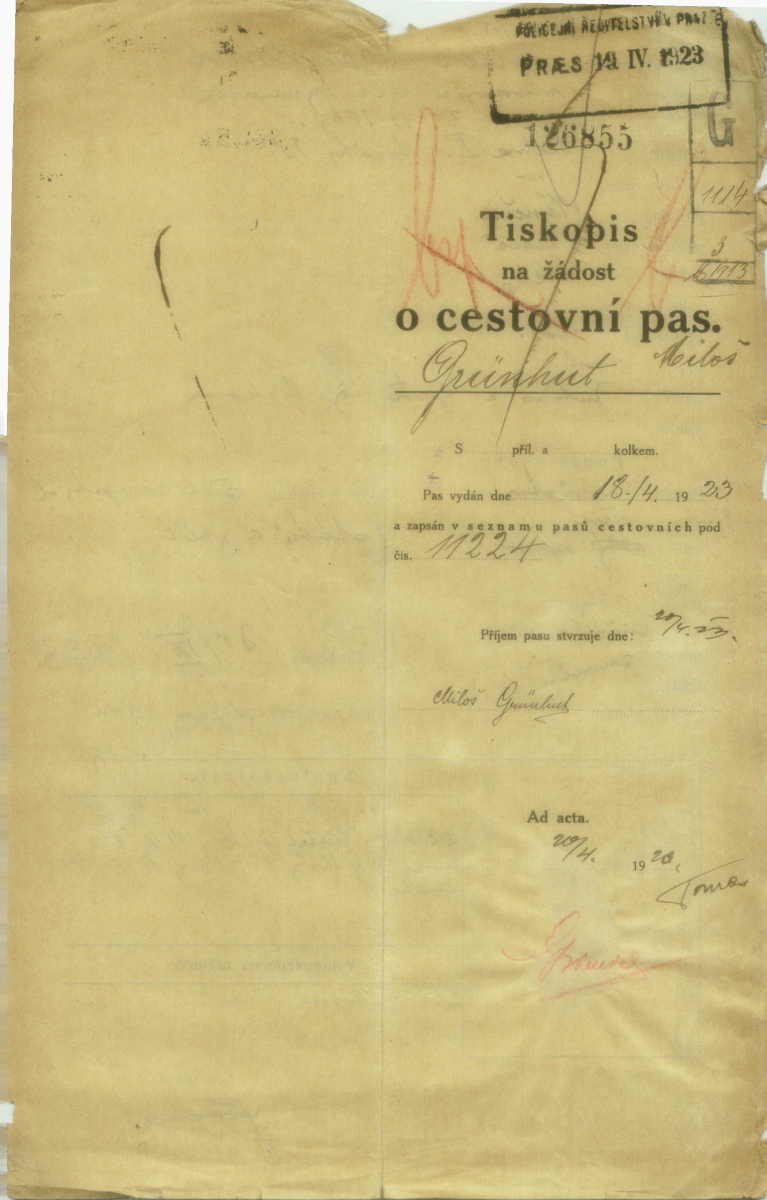 POLICEJNÍ ŘEDITELSTVÍ V PRAZE
PRÆS 19. IV. 1923
126855
G
1114
3
1913
Tiskopis
na žádost
o cestovní pas.
Grünhut Miloš
S příl. a kolkem.
Pas vydán dne 18./4. 1923
a zapsán v seznamu pasů cestovních pod
čís. 11224
Příjem pasu stvrzuje dne: 20/4. 23.
Miloš Grünhut
Ad acta.
20/4. 19